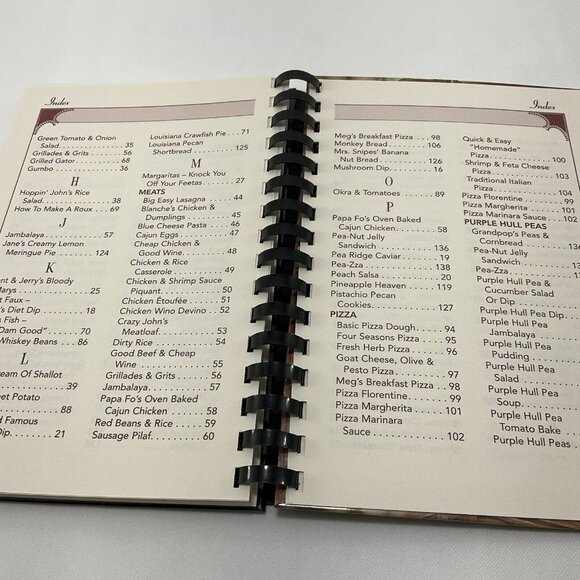 Index
Green Tomato & Onion
Salad. . . . . . . . . . . . . 35
Grillades & Grits . . . . . . 56
Grilled Gator . . . . . . . . . 68
Gumbo . . . . . . . . . . . . . 36
H
Hoppin' John's Rice
Salad. . . . . . . . . . . . . 38
How To Make A Roux . . 69
J
Jambalaya . . . . . . . . . . . 57
Jane's Creamy Lemon
Meringue Pie . . . . . . 124
K
nt & Jerry's Bloody
Marys . . . . . . . . . . . . . 25
t Faux –
's Diet Dip . . . . . . . . 18
s Fish –
Dam Good" . . . . . . . . 70
Whiskey Beans . . . . . . 86
L
ream Of Shallot
. . . . . . . . . . . . . 39
eet Potato
. . . . . . . . . . . . . 88
d Famous
Dip. . . . . . . . . . . . . 21
Louisiana Crawfish Pie . . . 71
Louisiana Pecan
Shortbread . . . . . . . . 125
M
Margaritas – Knock You
Off Your Feetas . . . . . . 27
MEATS
Big Easy Lasagna . . . . . 44
Blanche's Chicken &
Dumplings . . . . . . . . 45
Blue Cheese Pasta . . . . 46
Cajun Eggs . . . . . . . . . 47
Cheap Chicken &
Good Wine. . . . . . . . 48
Chicken & Rice
Casserole . . . . . . . . . 49
Chicken & Shrimp Sauce
Piquant. . . . . . . . . . . 50
Chicken Étoufée . . . . . 51
Chicken Wino Devino . . 52
Crazy John's
Meatloaf. . . . . . . . . . 53
Dirty Rice . . . . . . . . . . 54
Good Beef & Cheap
Wine . . . . . . . . . . . . 55
Grillades & Grits . . . . . . 56
Jambalaya. . . . . . . . . . 57
Papa Fo's Oven Baked
Cajun Chicken . . . . . . 58
Red Beans & Rice . . . . . 59
Sausage Pilaf. . . . . . . . 60
Index
Meg's Breakfast Pizza . . . 98
Monkey Bread . . . . . . . . 106
Mrs. Snipes' Banana
Nut Bread . . . . . . . . . 126
Mushroom Dip . . . . . . . . 16
O
Okra & Tomatoes . . . . . . 89
P
Papa Fo's Oven Baked
Cajun Chicken . . . . . . 58
Pea-Nut Jelly
Sandwich . . . . . . . . . 136
Pea Ridge Caviar . . . . . . 19
Pea-Zza . . . . . . . . . . . . 138
Peach Salsa . . . . . . . . . . 20
Pineapple Heaven . . . . . 119
Pistachio Pecan
Cookies . . . . . . . . . . 127
PIZZA
Basic Pizza Dough . . . . . 94
Four Seasons Pizza . . . . 95
Fresh Herb Pizza . . . . . . 96
Goat Cheese, Olive &
Pesto Pizza . . . . . . . . 97
Meg's Breakfast Pizza . . 98
Pizza Florentine. . . . . . . 99
Pizza Margherita . . . . . . 101
Pizza Marinara
Sauce . . . . . . . . . . . 102
Quick & Easy
"Homemade"
Pizza. . . . . . . . . . . . . 100
Shrimp & Feta Cheese
Pizza. . . . . . . . . . . . . 103
Traditional Italian
Pizza . . . . . . . . . . . . 104
Pizza Florentine . . . . . . . 99
Pizza Margherita . . . . . . 101
Pizza Marinara Sauce . . . 102
PURPLE HULL PEAS
Grandpop's Peas &
Cornbread . . . . . . . .
Pea-Nut Jelly
Sandwich . . . . . . . . .
Pea-Zza . . . . . . . . . . .
Purple Hull Pea &
Cucumber Salad
Or Dip . . . . . . . . . . .
Purple Hull Pea
Jambalaya . . . . . . . .
Purple Hull Pea
Pudding . . . . . . . . . .
Purple Hull Pea
Salad . . . . . . . . . . .
Purple Hull Pea
Soup. . . . . . . . . . . .
Purple Hull Pea
Tomato Bake . . . . . .
Purple Hull Peas . . . . .